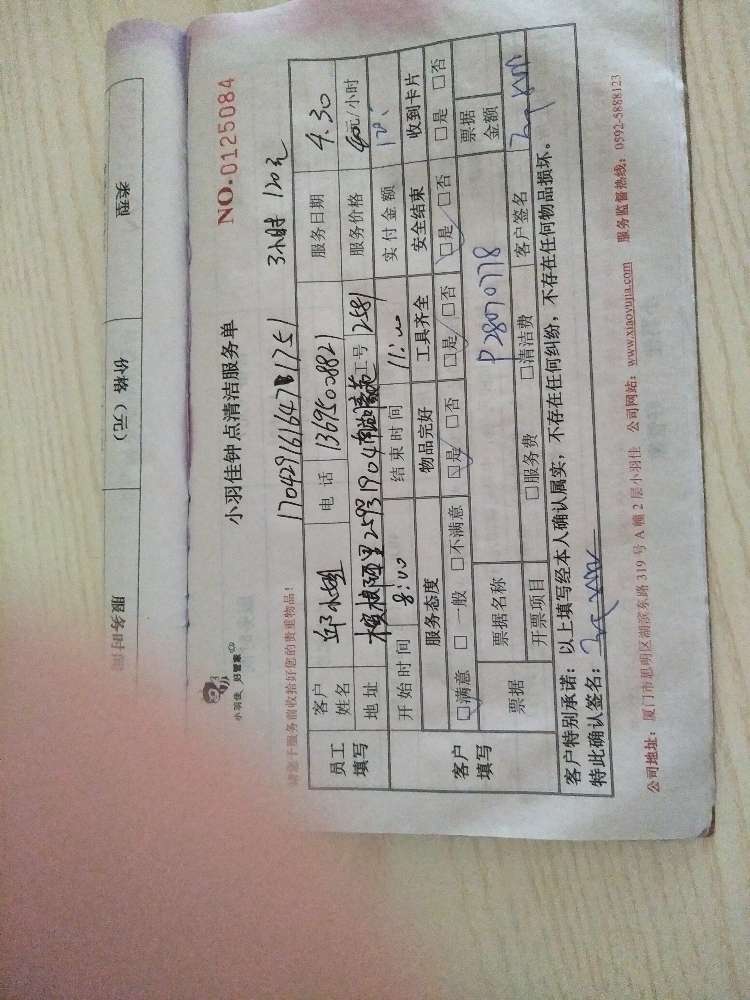 类型
价格（元）
服务时间
小羽佳 好管家
小羽佳钟点清洁服务单
NO.0125084
170429161647
1751
3小时 120元
请您于服务前收拾好您的贵重物品！
员工填写 客户姓名 邱小姐 电话 13695008821 服务日期 4.30
地址 2593 1904 工号 2581 服务价格 40元/小时
开始时间 8:00 结束时间 11:00 实付金额 120.
客户填写 服务态度 物品完好 工具齐全 安全结束 收到卡片
☑满意 □一般 □不满意 ☑是 □否 ☑是 □否 ☑是 □否 □是 □否
票据 票据名称 P28070778 票据金额
开票项目 □服务费 □清洁费 客户签名
客户特别承诺：以上填写经本人确认属实，不存在任何纠纷，不存在任何物品损坏。
特此确认签名：
公司地址：厦门市思明区湖滨东路319号A幢2层小羽佳 公司网站：www.xiaoyujia.com 服务监督热线：0592-5888123